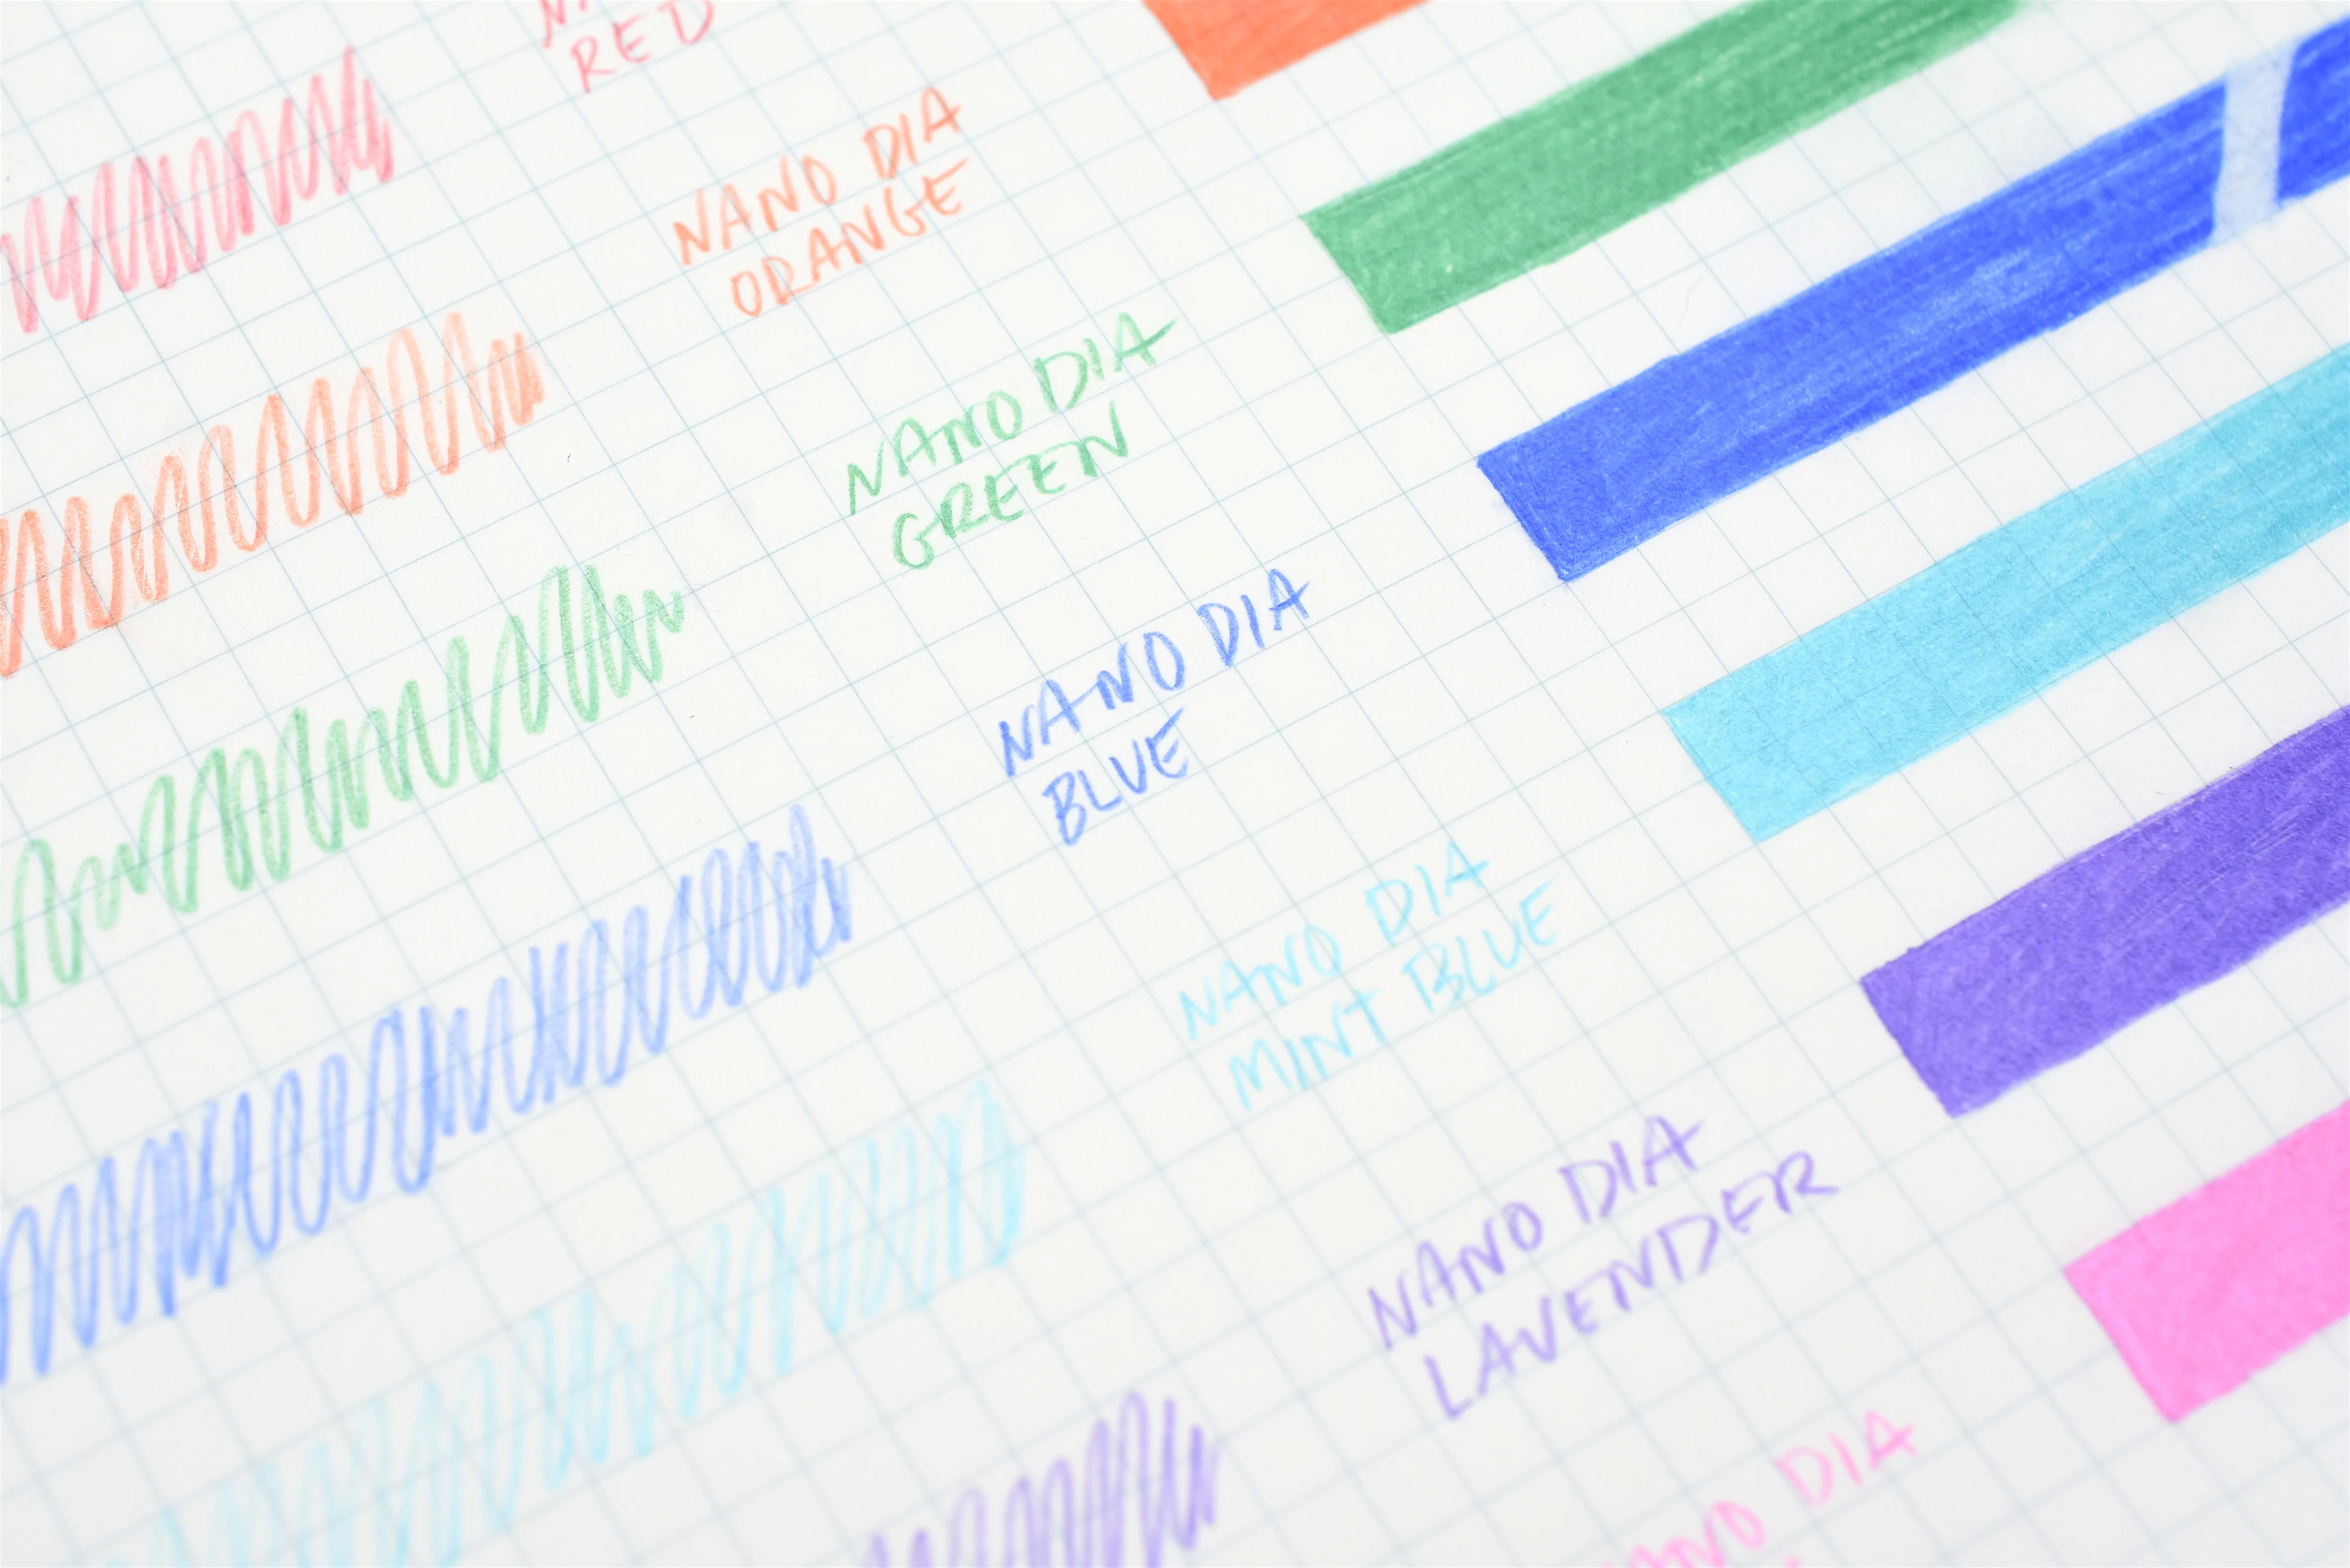 RED
NANO DIA
ORANGE
NANO DIA
GREEN
NANO DIA
BLUE
NANO DIA
MINT BLUE
NANO DIA
LAVENDER
NANO DIA